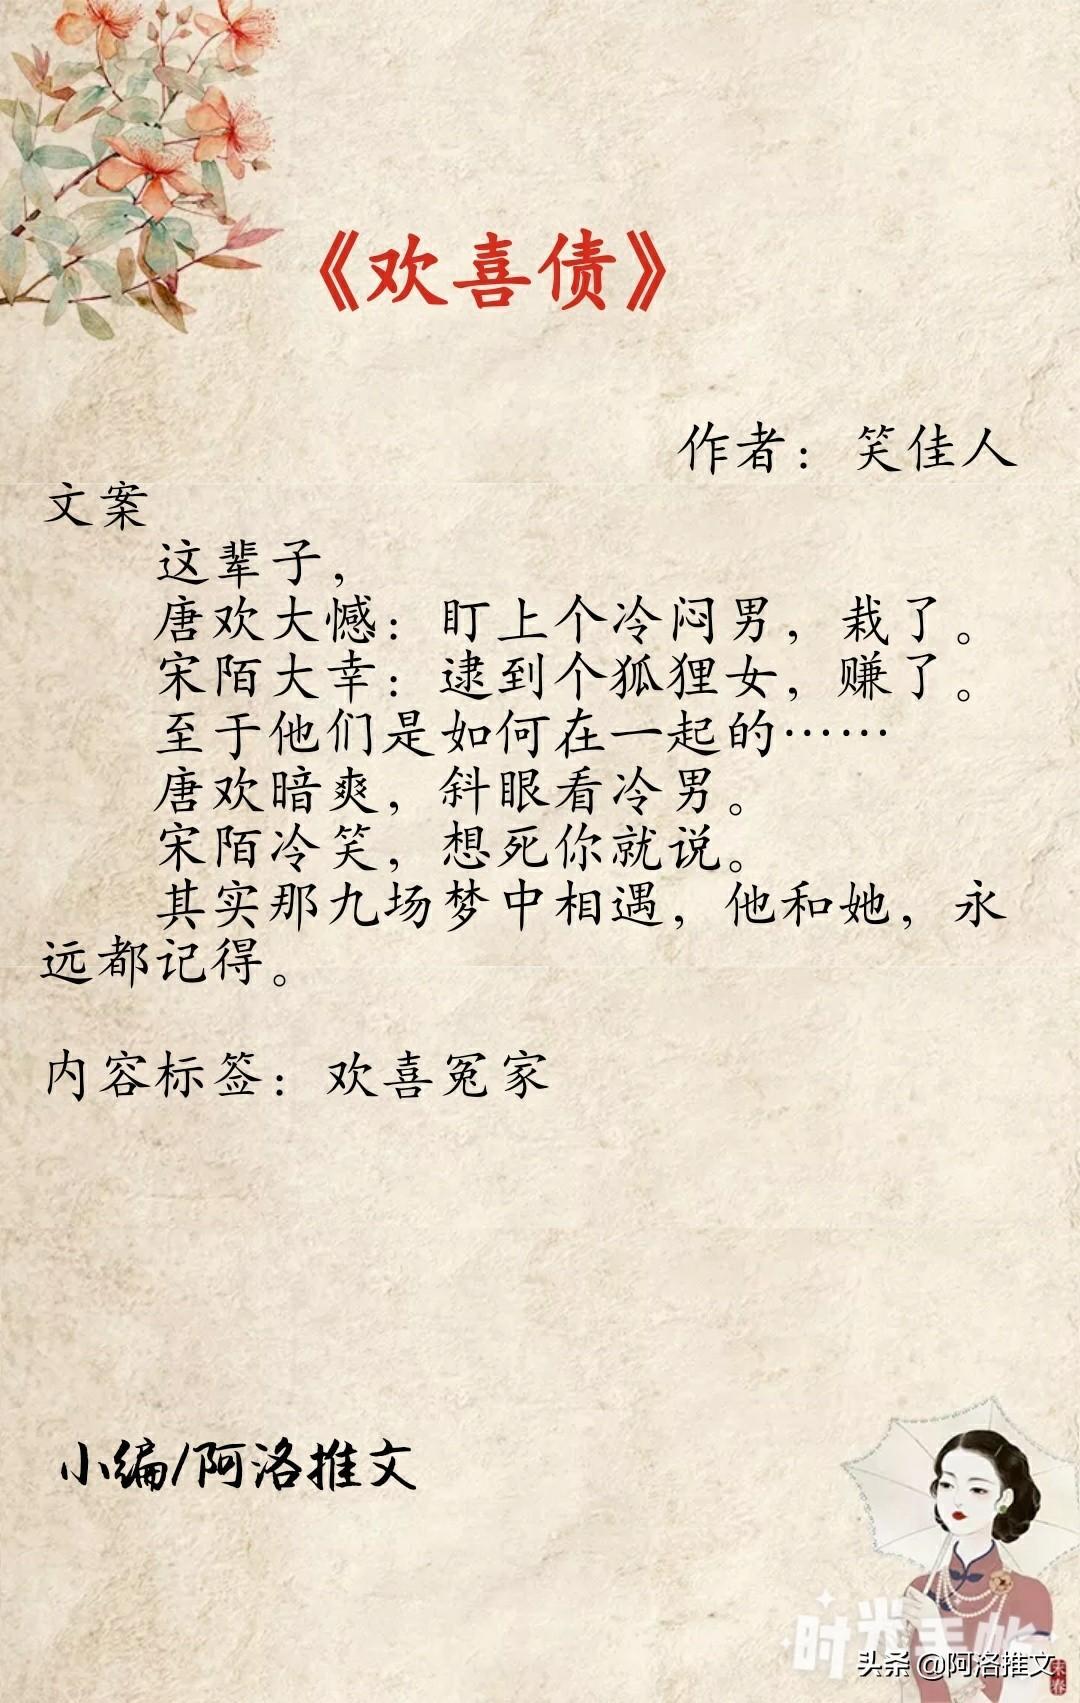 《欢喜债》
作者：笑佳人
文案
这辈子，
唐欢大憾：盯上个冷闷男，栽了。
宋陌大幸：逮到个狐狸女，赚了。
至于他们是如何在一起的……
唐欢暗爽，斜眼看冷男。
宋陌冷笑，想死你就说。
其实那九场梦中相遇，他和她，永
远都记得。
内容标签：欢喜冤家
小编/阿洛推文
时光手帐
头条 @阿洛推文